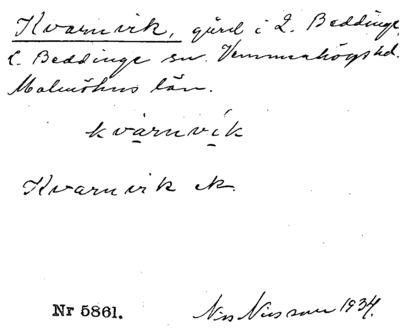 Kvarnvik, gård i L. Beddinge,
L. Beddinge sn. Vemmenhögs hd.
Malmöhus län.
kvarnvik
Kvarnvik ek.
Nr 5861. Nils Nilsson 1934.